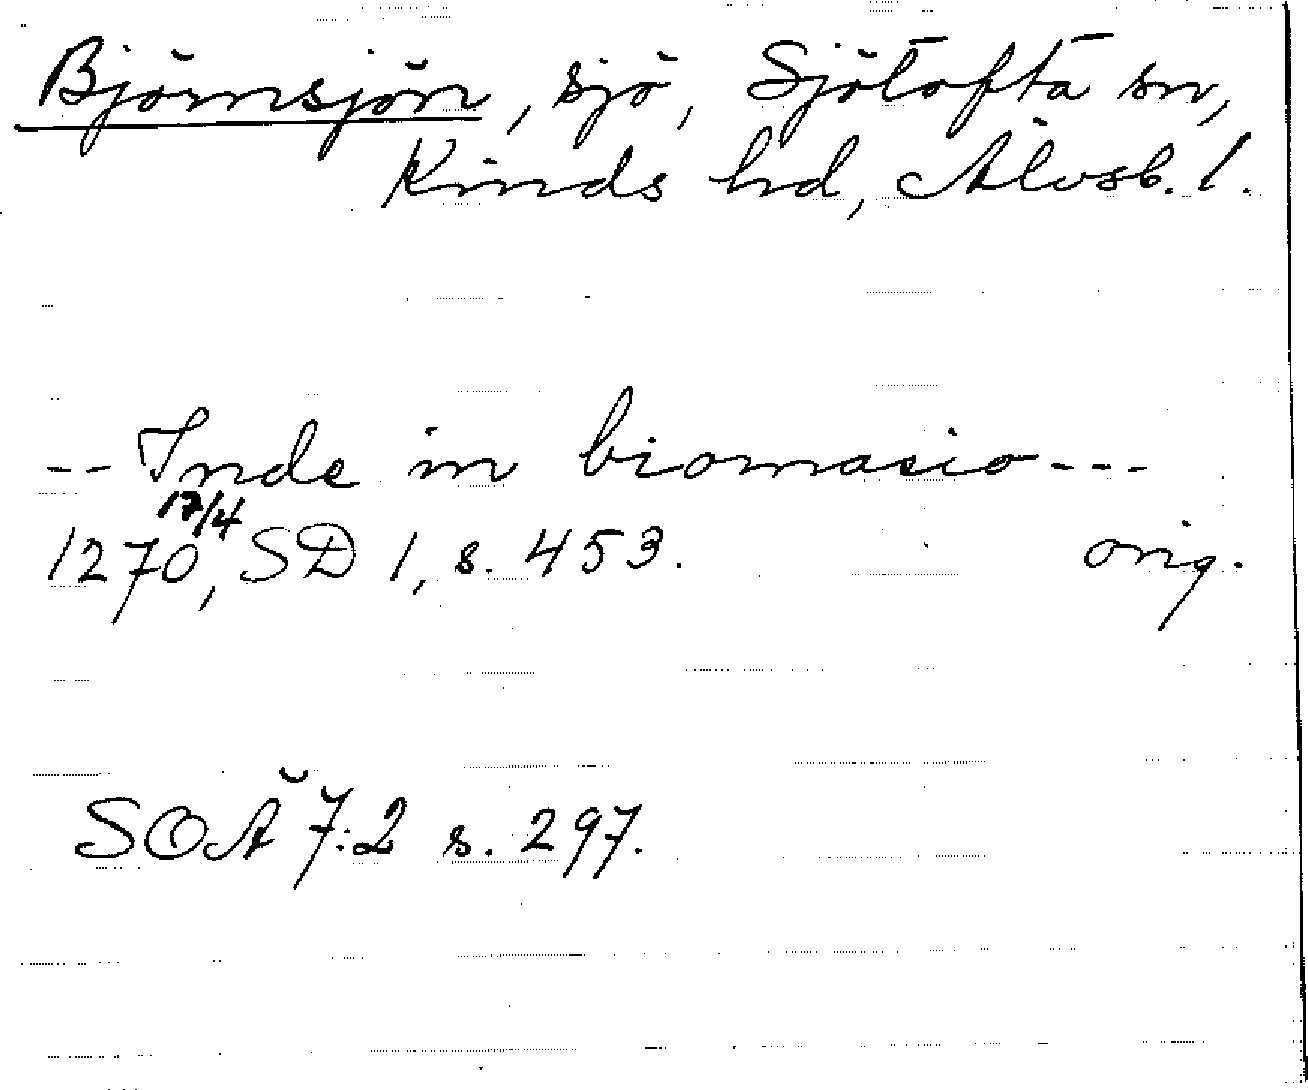 Björnsjön, sjö, Sjötofta sn,
Kinds hd, Älvsb. l.
-- Inde in biornasio ---
17/4
1270, SD 1, s. 453. orig.
SOÄ 7:2 s. 297.